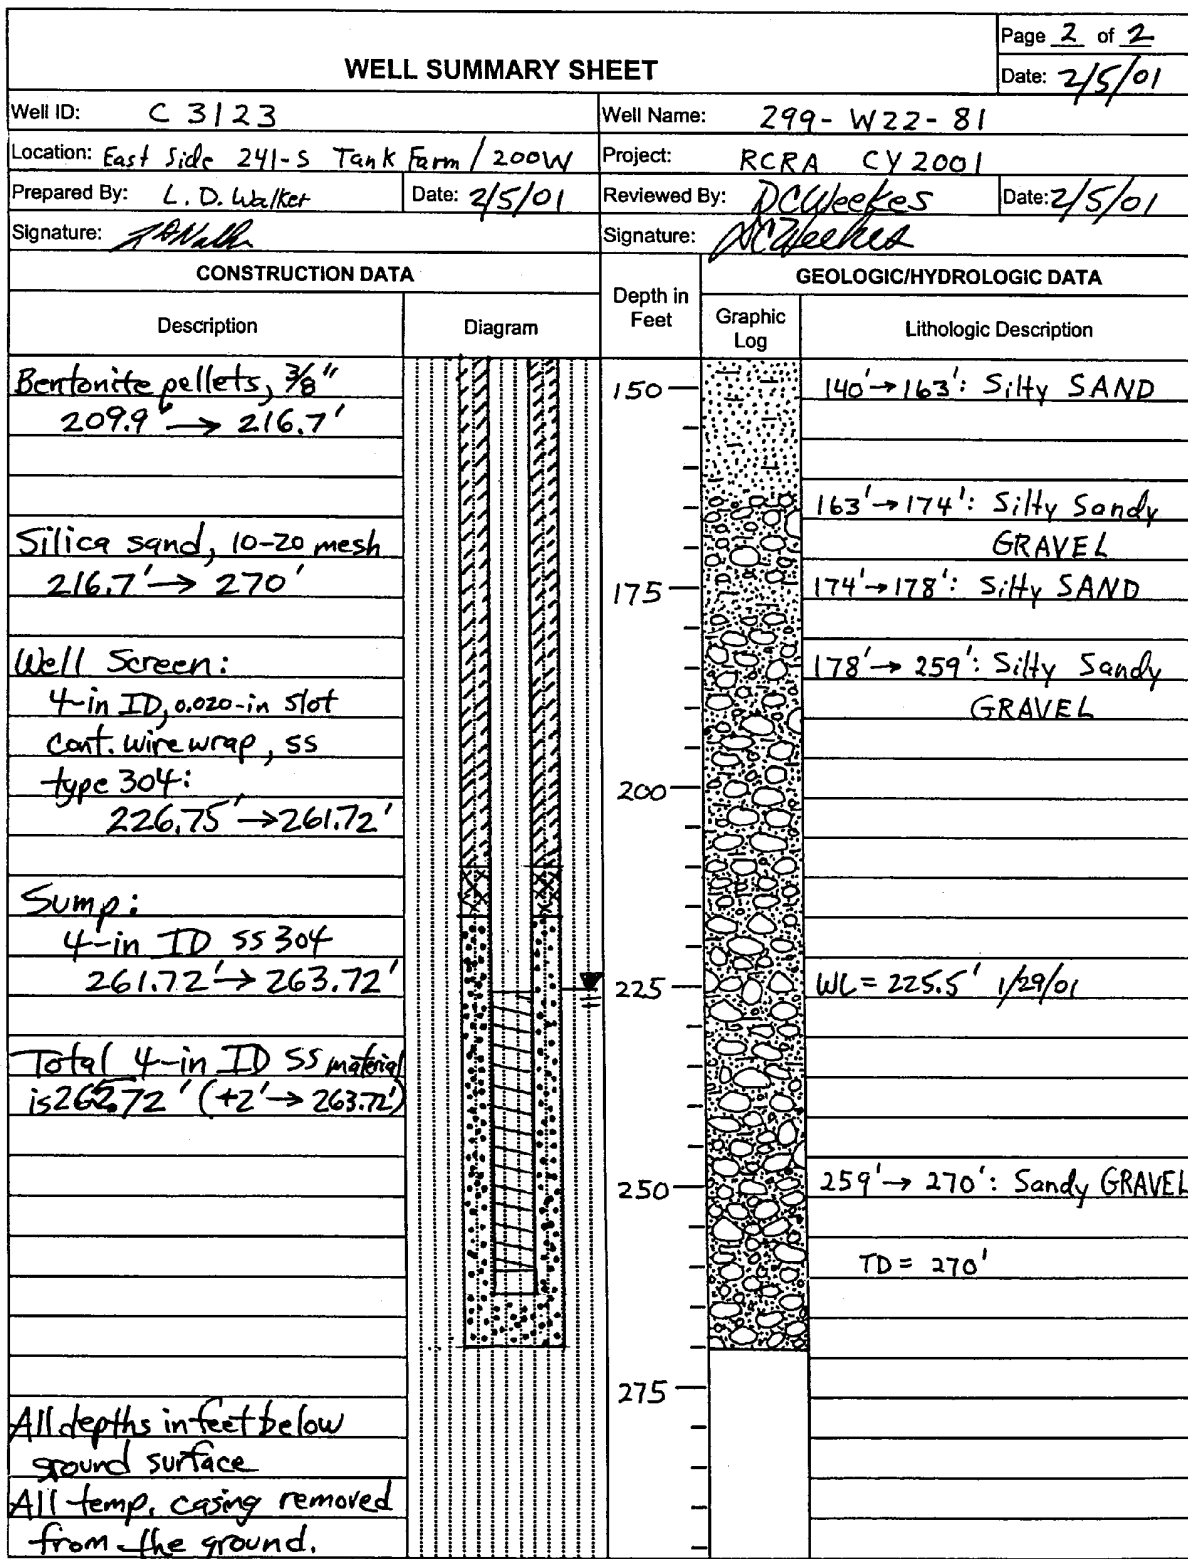 Page 2 of 2
WELL SUMMARY SHEET
Date: 2/5/01
Well ID: C 3123
Well Name: 299-W22-81
Location: East Side 241-S Tank Farm / 200W
Project: RCRA CY 2001
Prepared By: L. D. Walker
Date: 2/5/01
Reviewed By: DC Weekes
Date: 2/5/01
Signature: LDWalker
Signature: DC Weekes
CONSTRUCTION DATA
Depth in
Feet
GEOLOGIC/HYDROLOGIC DATA
Description
Diagram
Graphic
Log
Lithologic Description
Bentonite pellets, 3/8"
209.9' → 216.7'
Silica sand, 10-20 mesh
216.7' → 270'
Well Screen:
4-in ID, 0.020-in slot
cont. wire wrap, SS
type 304:
226.75' → 261.72'
Sump:
4-in ID SS 304
261.72' → 263.72'
Total 4-in ID SS material
is (+2' → 263.72')
All depths in feet below
ground surface
All temp. casing removed
from the ground.
150
175
200
225
250
275
140' → 163': Silty SAND
163' → 174': Silty Sandy
GRAVEL
174' → 178': Silty SAND
178' → 259': Silty Sandy
GRAVEL
WL = 225.5' 1/29/01
259' → 270': Sandy GRAVEL
TD = 270'